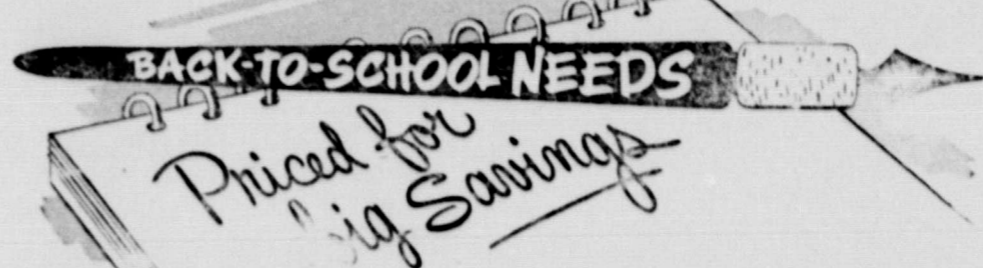 BACK-TO-SCHOOL NEEDS
Priced for
Big Savings